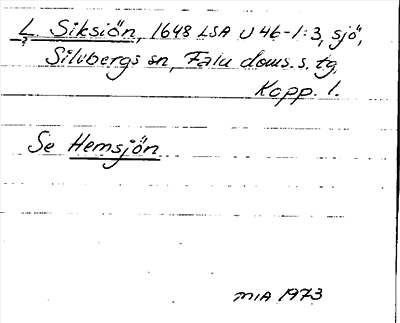 L. Siksiön, 1648 LSA U 46-1:3, sjö,
Silvbergs sn, Falu doms. s. tg,
Kopp. l.
Se Hemsjön
MIA 1973